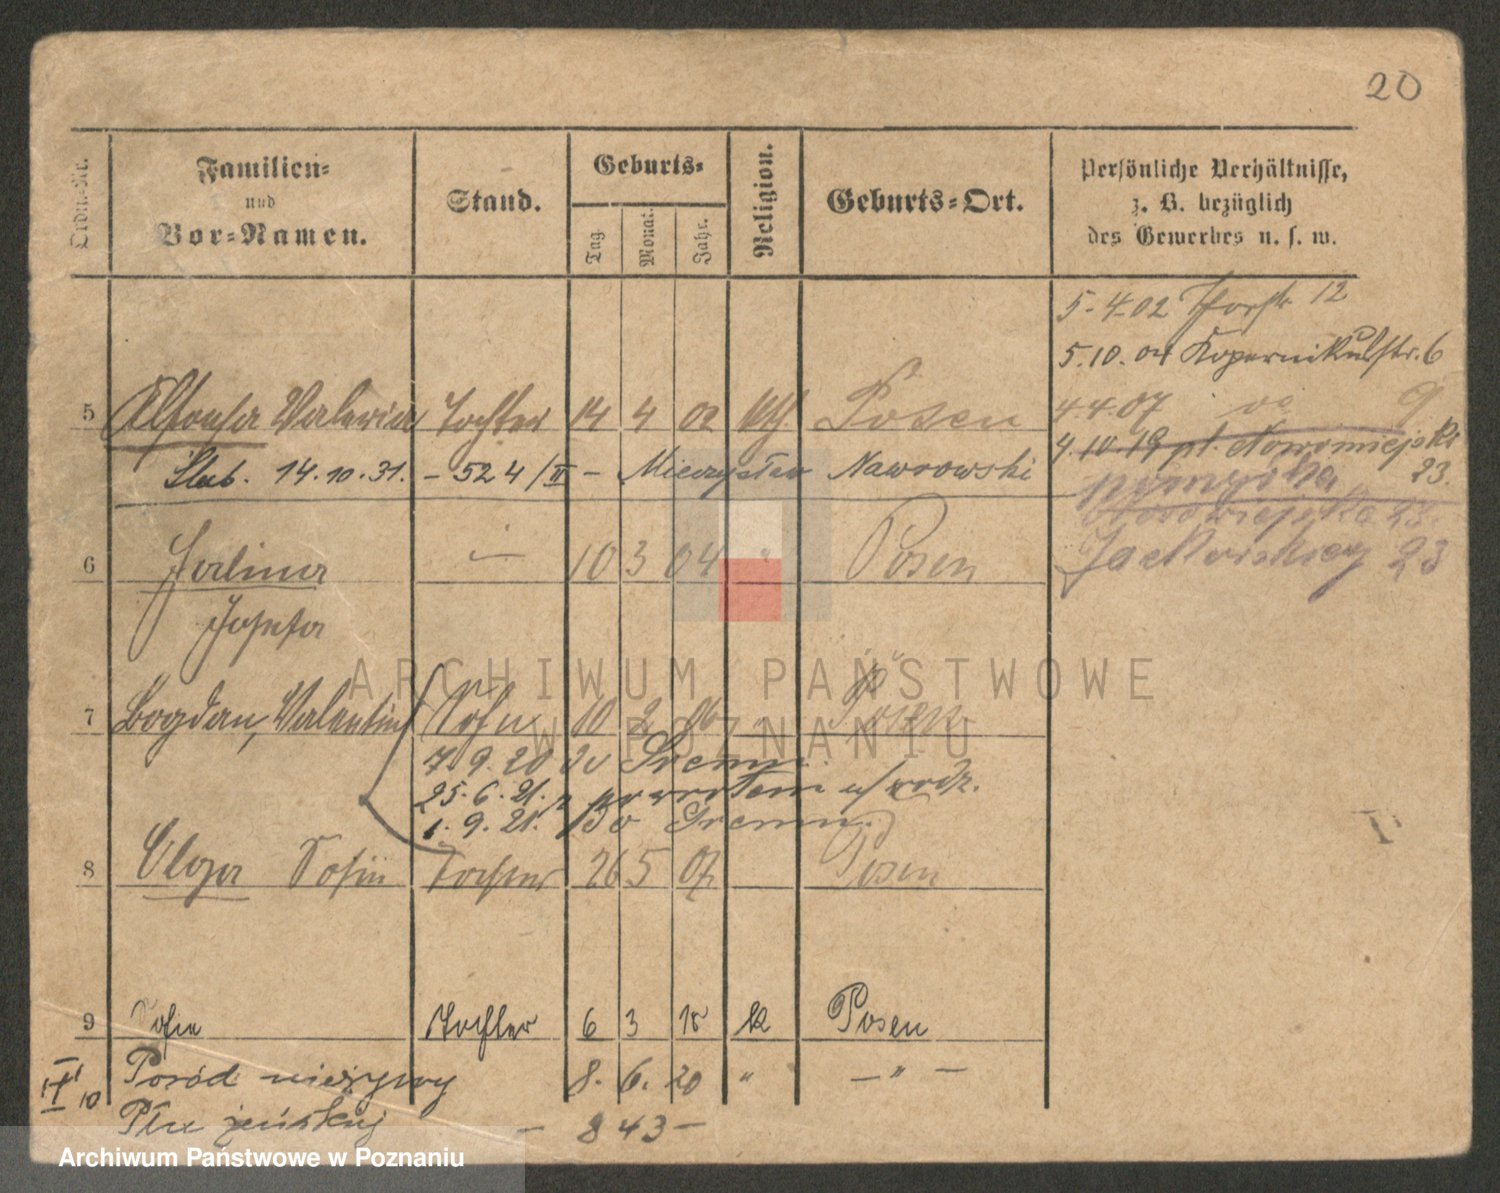 20
Ordn.-Nr.
Familien-
und
Vor-Namen.
Stand.
Geburts-
Tag.
Monat.
Jahr.
Religion.
Geburts-Ort.
Persönliche Verhältnisse,
z. B. bezüglich
des Gewerbes u. s. w.
5-4-02 12
5.10.04 Kopernikusstr. 6
4.4.07 9
5 Valeria Tochter 14 4 02 kth. Posen
4.10.19 pl. Nowomiejski
Ślub. 14.10.31. - 524/II - Mieczysław Nawrowski
23.
23.
6 Halina — 10 3 04 " Posen
Jackowskiego 23
Josefa
7 Bogdan, Valentin Sohn 10 2 06 " Posen
7.9.20 do Śremu.
25.6.21. z powrotem u/rodz.
1.9.21. do Śremu.
8 Olga Sofie Tochter 26 5 07 Posen
9 Sofie Tochter 6 3 15 k Posen
10 Poród nieżywy 8. 6. 20 " — " —
Płci żeńskiej — 843 —
ARCHIWUM PAŃSTWOWE
W POZNANIU
Archiwum Państwowe w Poznaniu